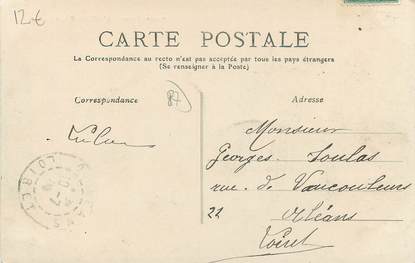 12€
CARTE POSTALE
La Correspondance au recto n'est pas acceptée par tous les pays étrangers
(Se renseigner à la Poste)
Correspondance
87
Adresse
Monsieur
Georges Soulas
rue de Vaucouleurs
22
Orléans
Loiret
LOIRET